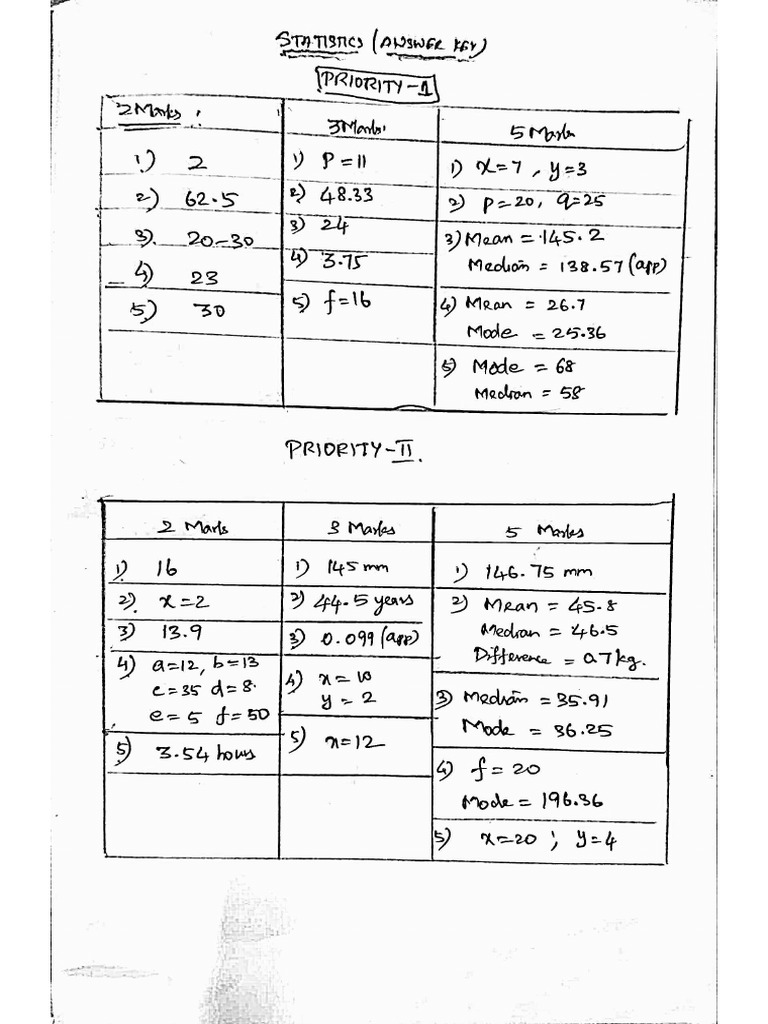 STATISTICS (ANSWER KEY)
PRIORITY-1
2 Marks :
1) 2
2) 62.5
3). 20-30
4) 23
5) 30
3 Marks:
1) P=11
2) 48.33
3) 24
4) 3.75
5) f=16
5 Marks
1) x=7, y=3
2) P=20, q=25
3) Mean = 145.2
Median = 138.57 (app)
4) Mean = 26.7
Mode = 25.36
5) Mode = 68
Median = 58
PRIORITY-II.
2 Marks
1) 16
2). x=2
3) 13.9
4) a=12, b=13
c=35 d=8.
e=5 f=50
5) 3.54 hours
3 Marks
1) 145 mm
2) 44.5 years
3) 0.099 (app)
4) x=10
y=2
5) x=12
5 Marks
1) 146.75 mm
2) Mean = 45.8
Median = 46.5
Difference = 0.7 kg.
3) Median = 35.91
Mode = 36.25
4) f=20
Mode = 196.36
5) x=20 ; y=4